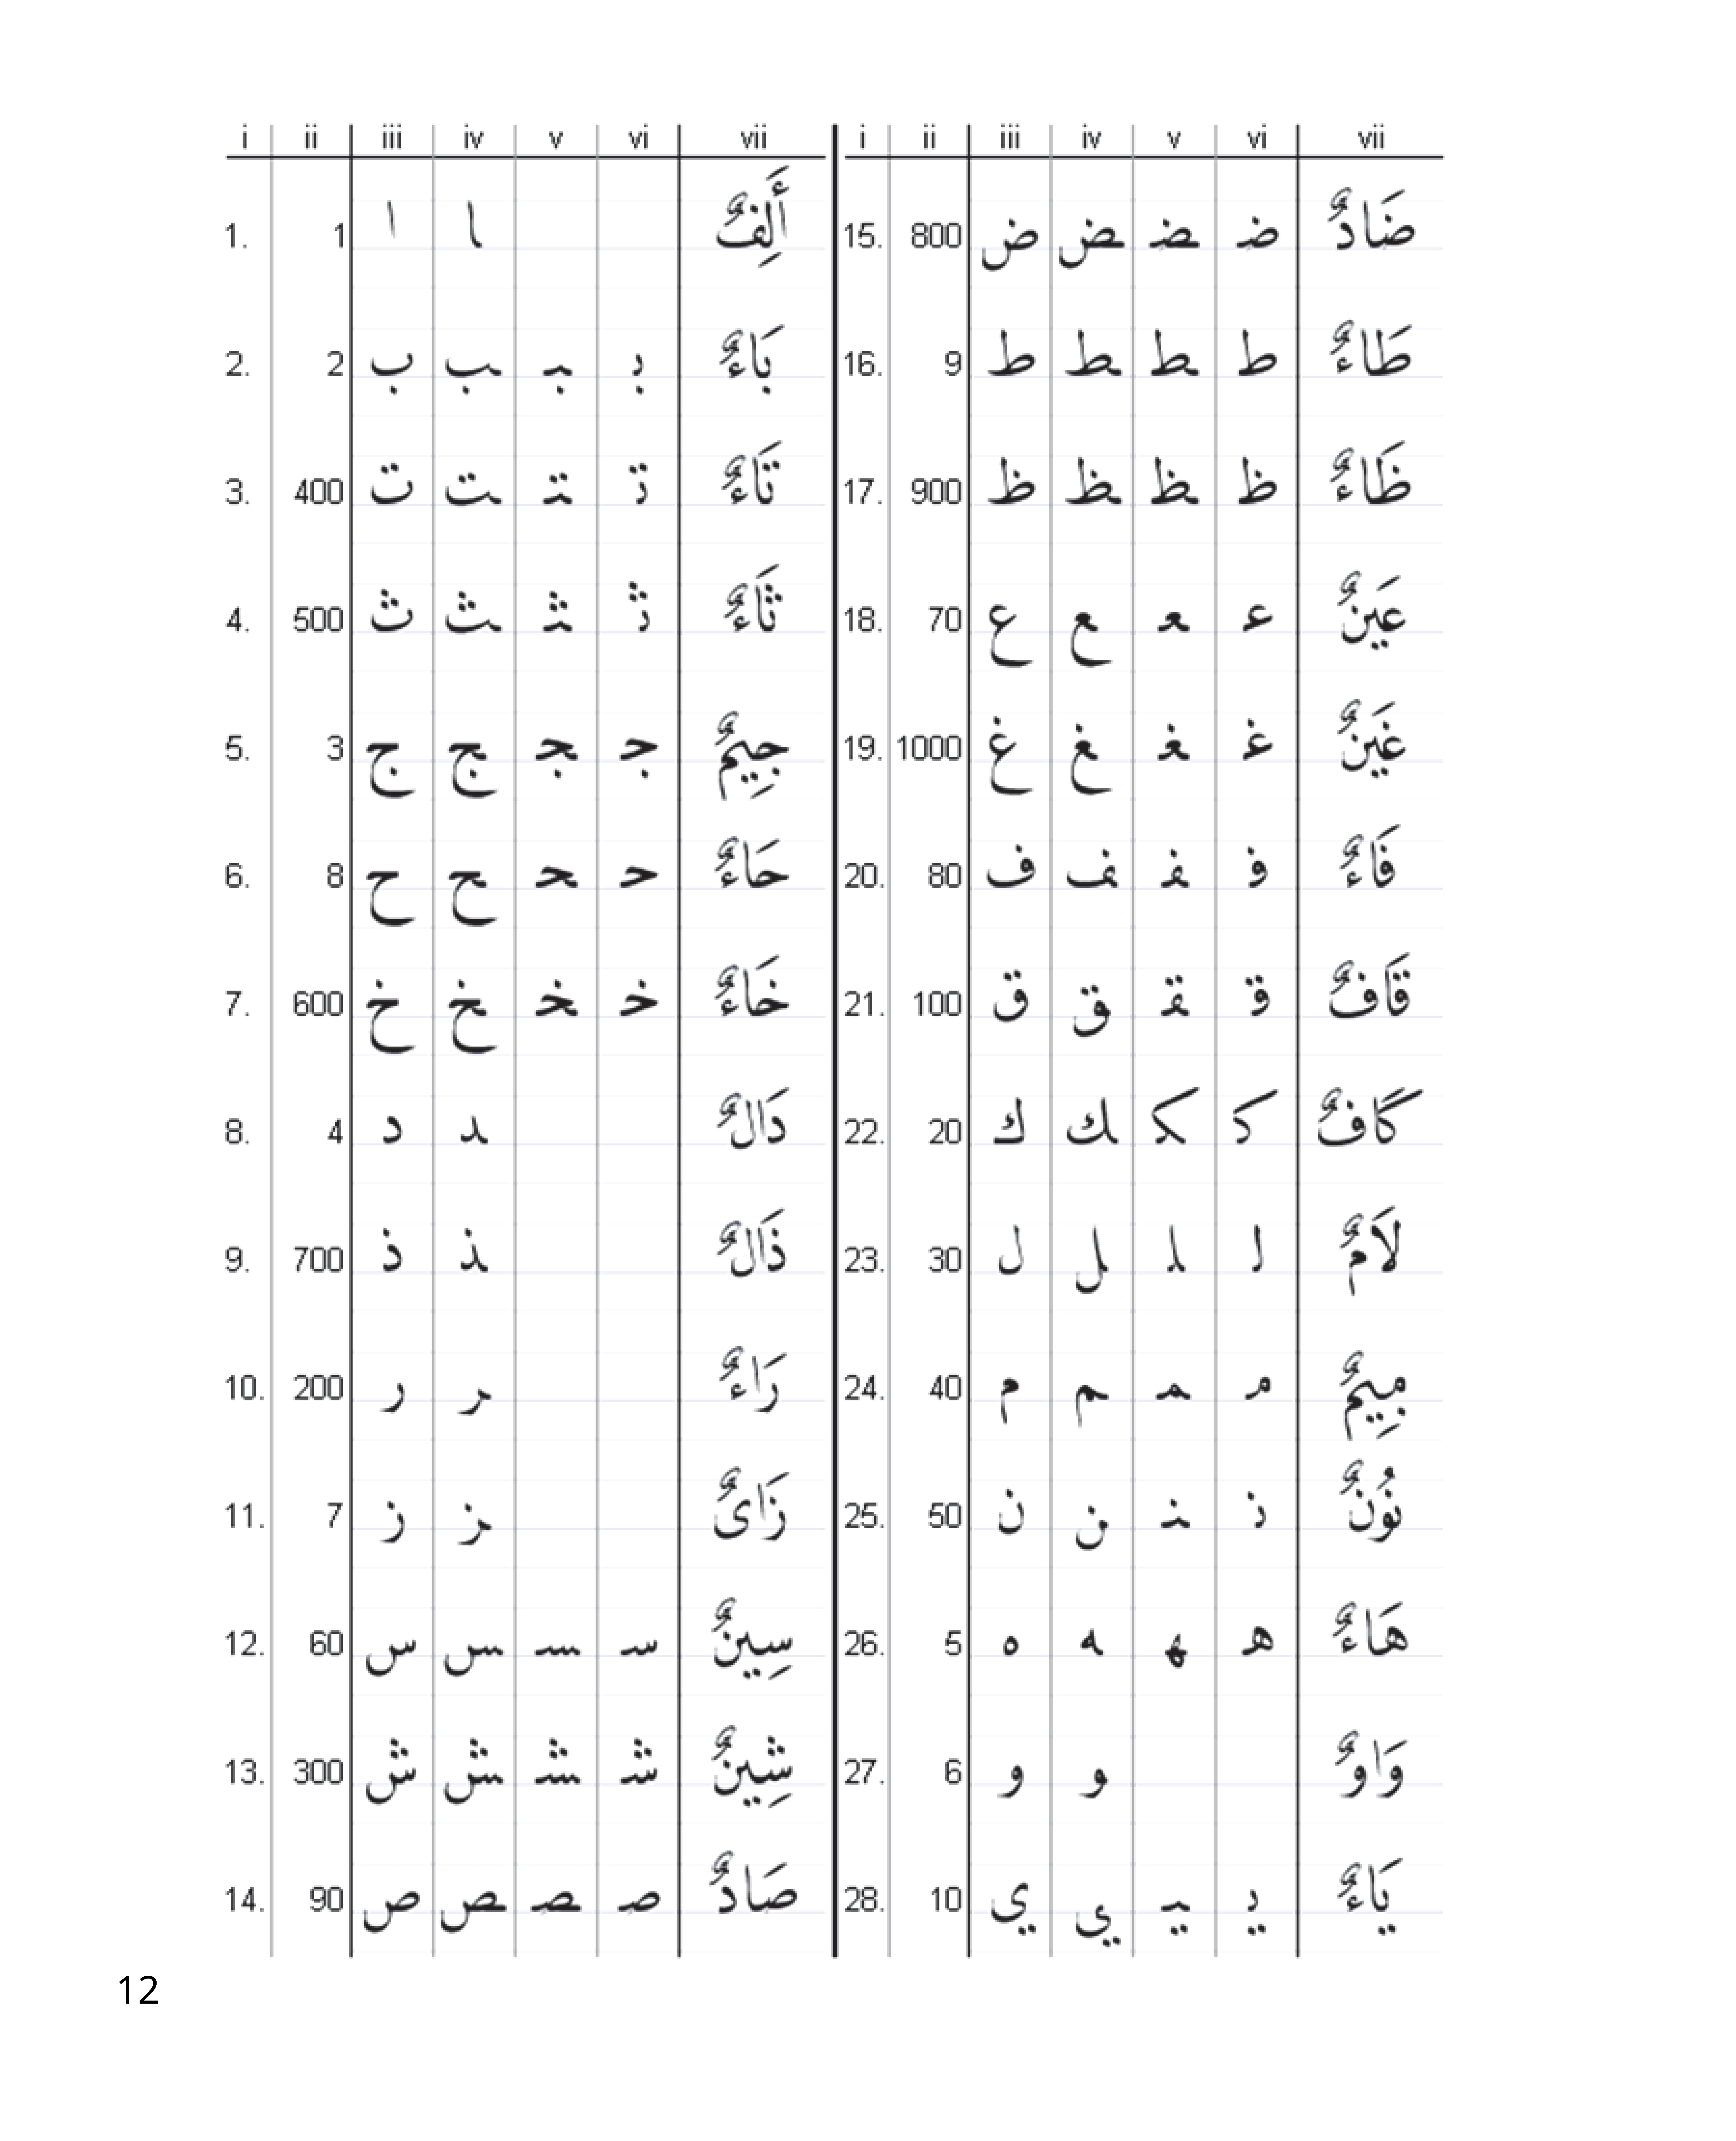 i ii iii iv v vi vii i ii iii iv v vi vii
1. 1 ا ـا أَلِفٌ 15. 800 ض ـض ـضـ ضـ ضَادٌ
2. 2 ب ـب ـبـ بـ بَاءٌ 16. 9 ط ـط ـطـ طـ طَاءٌ
3. 400 ت ـت ـتـ تـ تَاءٌ 17. 900 ظ ـظ ـظـ ظـ ظَاءٌ
4. 500 ث ـث ـثـ ثـ ثَاءٌ 18. 70 ع ـع ـعـ عـ عَينٌ
5. 3 ج ـج ـجـ جـ جِيمٌ 19. 1000 غ ـغ ـغـ غـ غَينٌ
6. 8 ح ـح ـحـ حـ حَاءٌ 20. 80 ف ـف ـفـ فـ فَاءٌ
7. 600 خ ـخ ـخـ خـ خَاءٌ 21. 100 ق ـق ـقـ قـ قَافٌ
8. 4 د ـد دَالٌ 22. 20 ك ـك ـكـ كـ كَافٌ
9. 700 ذ ـذ ذَالٌ 23. 30 ل ـل ـلـ لـ لَامٌ
10. 200 ر ـر رَاءٌ 24. 40 م ـم ـمـ مـ مِيمٌ
11. 7 ز ـز زَاىٌ 25. 50 ن ـن ـنـ نـ نُونٌ
12. 60 س ـس ـسـ سـ سِينٌ 26. 5 ه ـه ـهـ هـ هَاءٌ
13. 300 ش ـش ـشـ شـ شِينٌ 27. 6 و ـو وَاوٌ
14. 90 ص ـص ـصـ صـ صَادٌ 28. 10 ي ـي ـيـ يـ يَاءٌ
12